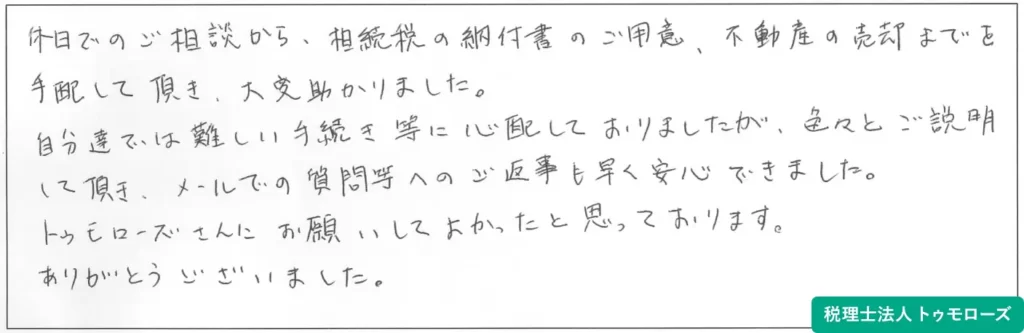 休日でのご相談から、相続税の納付書のご用意、不動産の売却までを
手配して頂き、大変助かりました。
自分達では難しい手続き等に心配しておりましたが、色々とご説明
して頂き、メールでの質問等へのご返事も早く安心できました。
トゥモローズさんにお願いしてよかったと思っております。
ありがとうございました。
税理士法人トゥモローズ